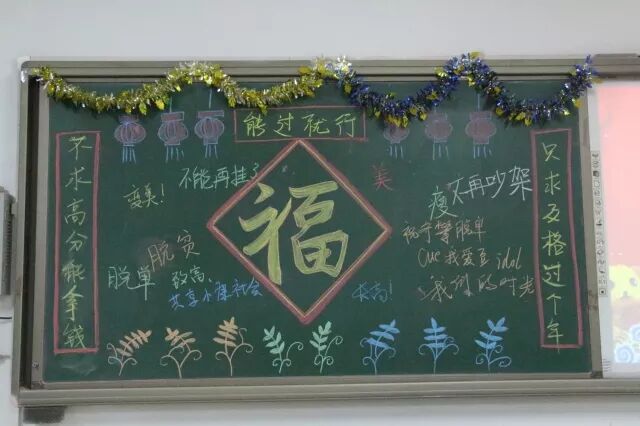 能过就行
不求高分能拿钱
只求及格过个年
福
变美!
不能再挂了
美
瘦
不再吵架
脱贫
脱单
致高
共享小课社会
长高!
祝宁等脱单
我爱豆idol
我们的时光